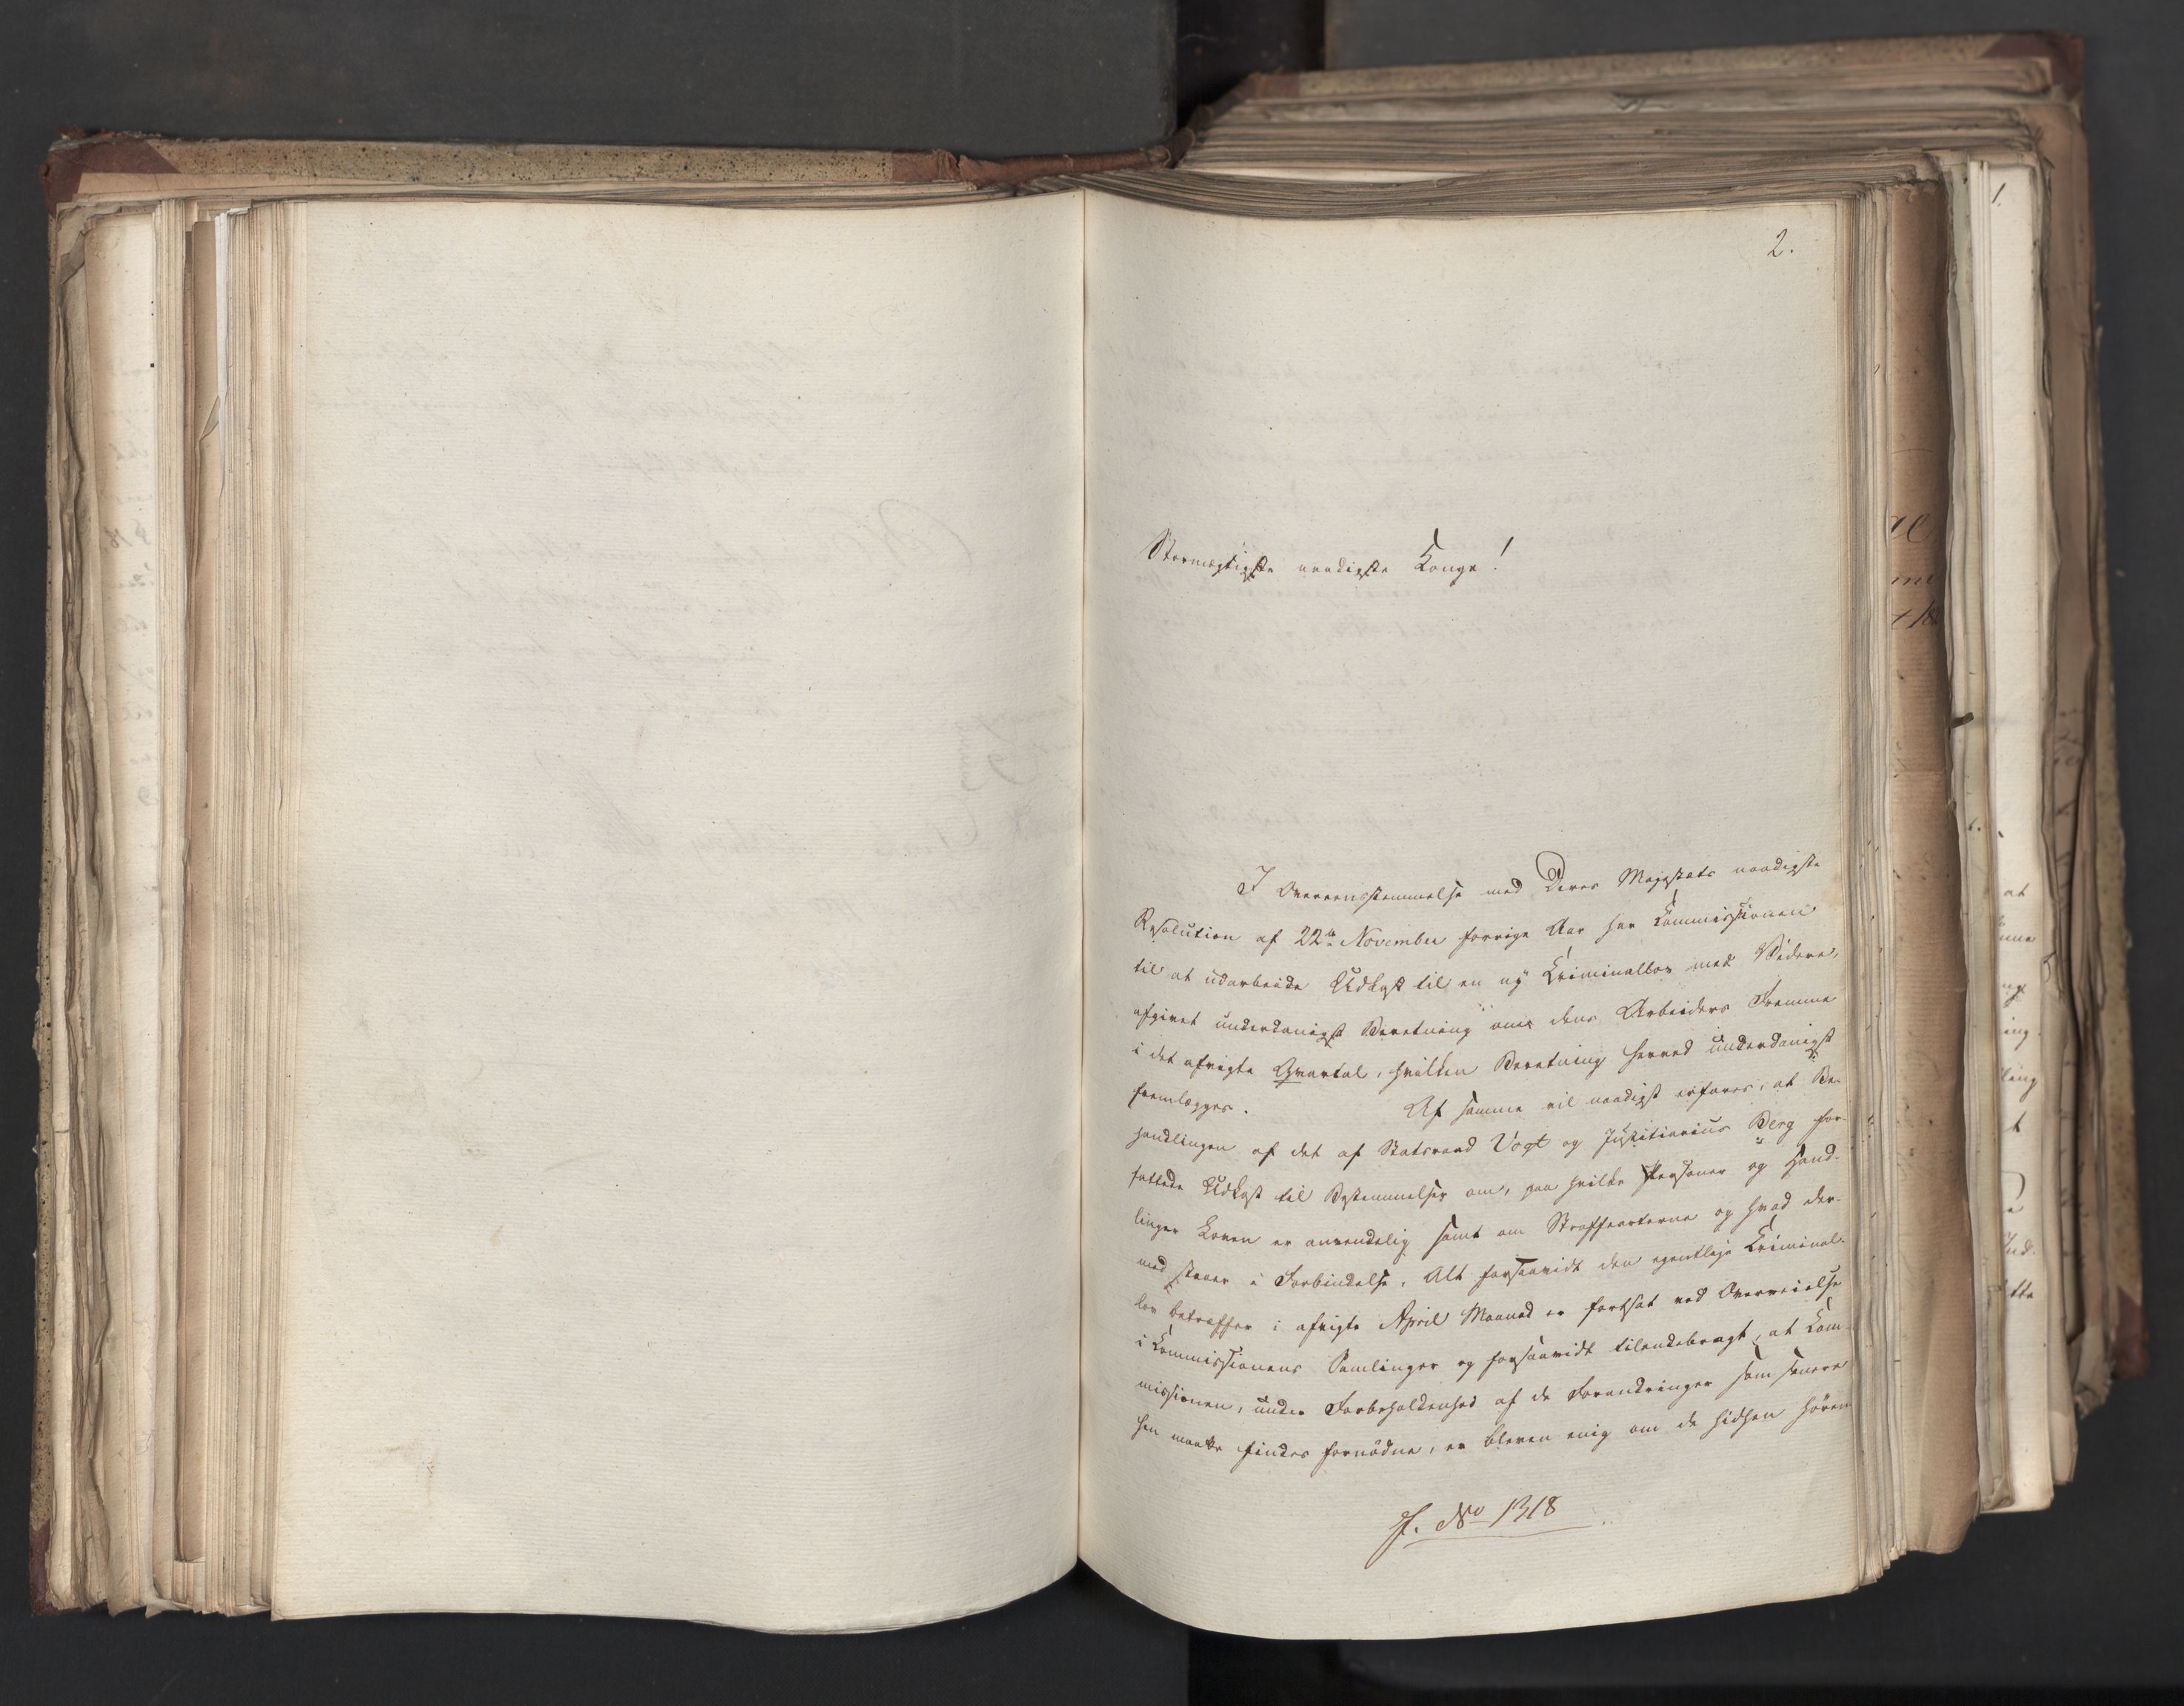 2.
Stormægtigste naadigste Konge!
I Overeensstemmelse med Deres Majestæts naadigste
Resolution af 22de November forrige Aar har Kommissionen
til at udarbeide Udkast til en ny Kriminallov med Videre,
afgivet underdanigst Beretning om dens Arbeiders Fremme
i det afvigte Qvartal, hvilken Beretning herved underdanigst
fremlægges. Af samme vil naadigst erfares, at Be-
handlingen af det af Statsraad Vogt og Justitiarius Berg for-
fattede Udkast til Bestemmelser om, paa hvilke Personer og Hand-
linger Loven er anvendelig samt om Straffearterne og hvad der-
med staaer i Forbindelse, Alt forsaavidt den egentlige Kriminal-
lov betræffer i afvigte April Maaned er fortsat ved Overveielse
i Kommissionens Samlinger og forsaavidt tilendebragt, at Kom-
missionen, under Forbeholdenhed af de Forandringer som senere
hen maatte findes fornødne, er bleven enig om de hidhen hören
J. No 1318